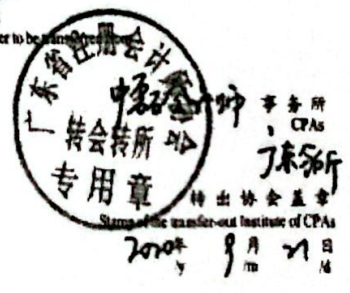 er to be transferred from
广东省注册会计师协会
转会转所
专用章
事务所
CPAs
广东分所
转出协会盖章
Stamp of the transfer-out Institute of CPAs
2020年 9月 21日
/y /m /d